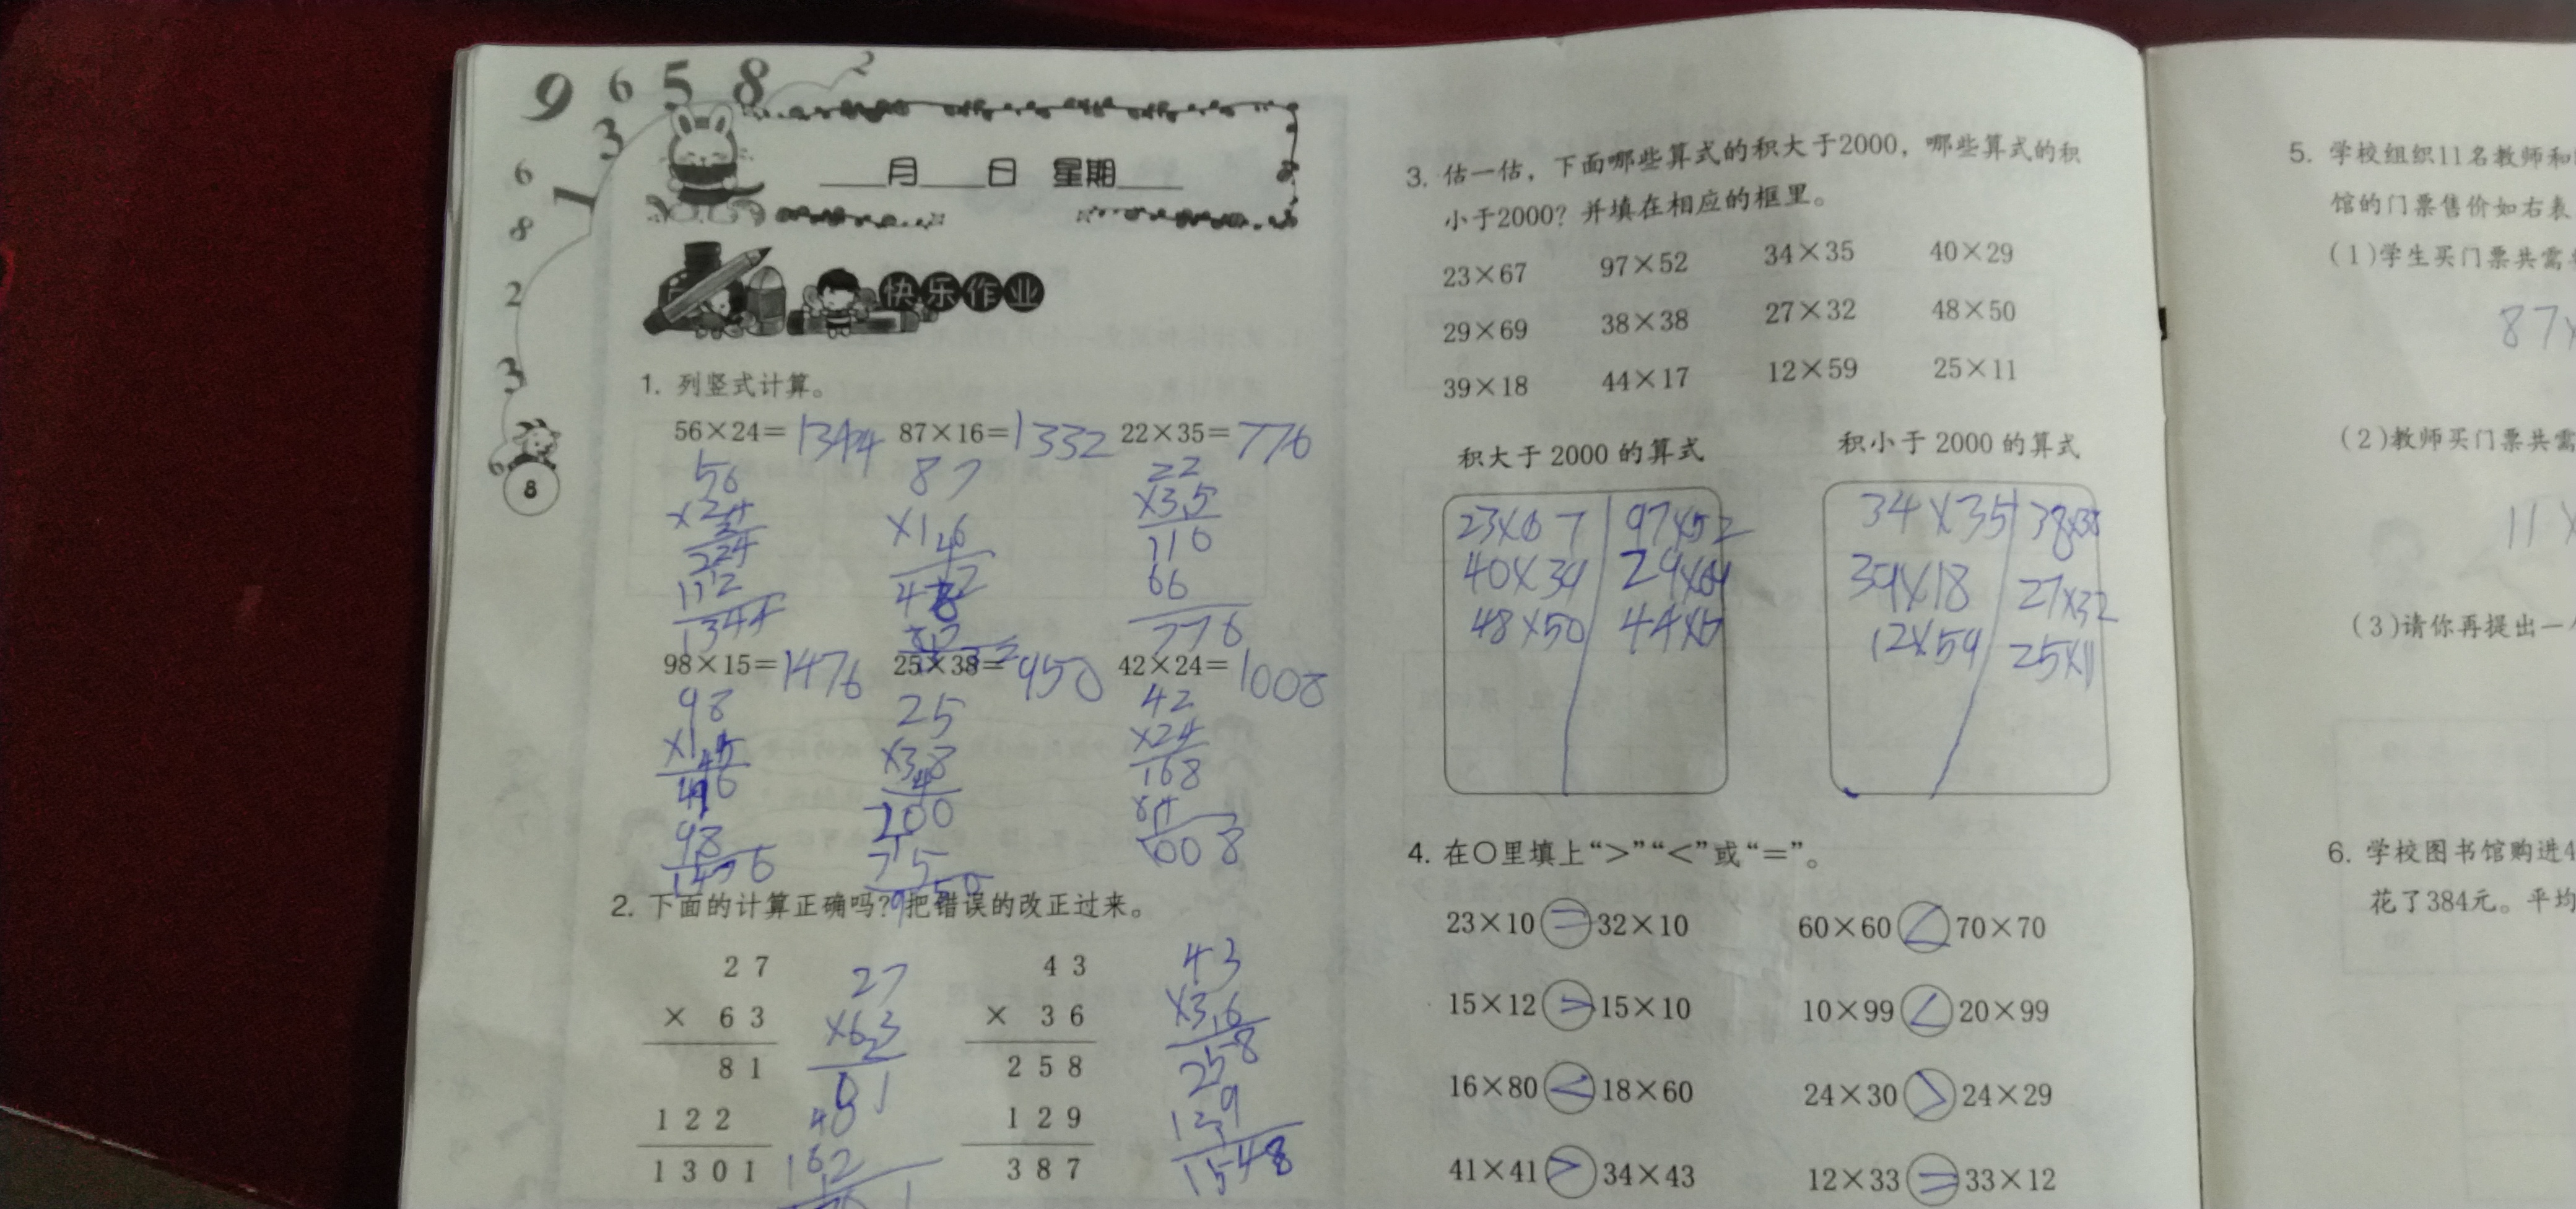 9 6 5 8 2
3
6
1
8
2
3
6
8
___月___日 星期___
快乐作业
1. 列竖式计算。
56×24=1344 87×16=1332 22×35=776
56 87 22
×24 ×16 ×35
224 110
112 66
1344 776
98×15=1476 25×38=950 42×24=1008
98 25 42
×15 ×38 ×24
200 168
98 75 84
1476 950 1008
2. 下面的计算正确吗?把错误的改正过来。
27 27 43 43
× 63 ×63 × 36 ×36
81 81 258 258
122 162 129 129
1301 387 1548
3. 估一估，下面哪些算式的积大于2000，哪些算式的积
小于2000? 并填在相应的框里。
23×67 97×52 34×35 40×29
29×69 38×38 27×32 48×50
39×18 44×17 12×59 25×11
积大于 2000 的算式 积小于 2000 的算式
23×67 97×52 34×35 38×38
40×39 39×18 27×32
48×50 12×59 25×11
4. 在○里填上“>”“<”或“=”。
23×10=32×10 60×60<70×70
15×12>15×10 10×99<20×99
16×80<18×60 24×30>24×29
41×41>34×43 12×33=33×12
5. 学校组织11名教师和
馆的门票售价如右表
(1)学生买门票共需
87×
(2)教师买门票共需
11×
(3)请你再提出一
6. 学校图书馆购进4
花了384元。平均